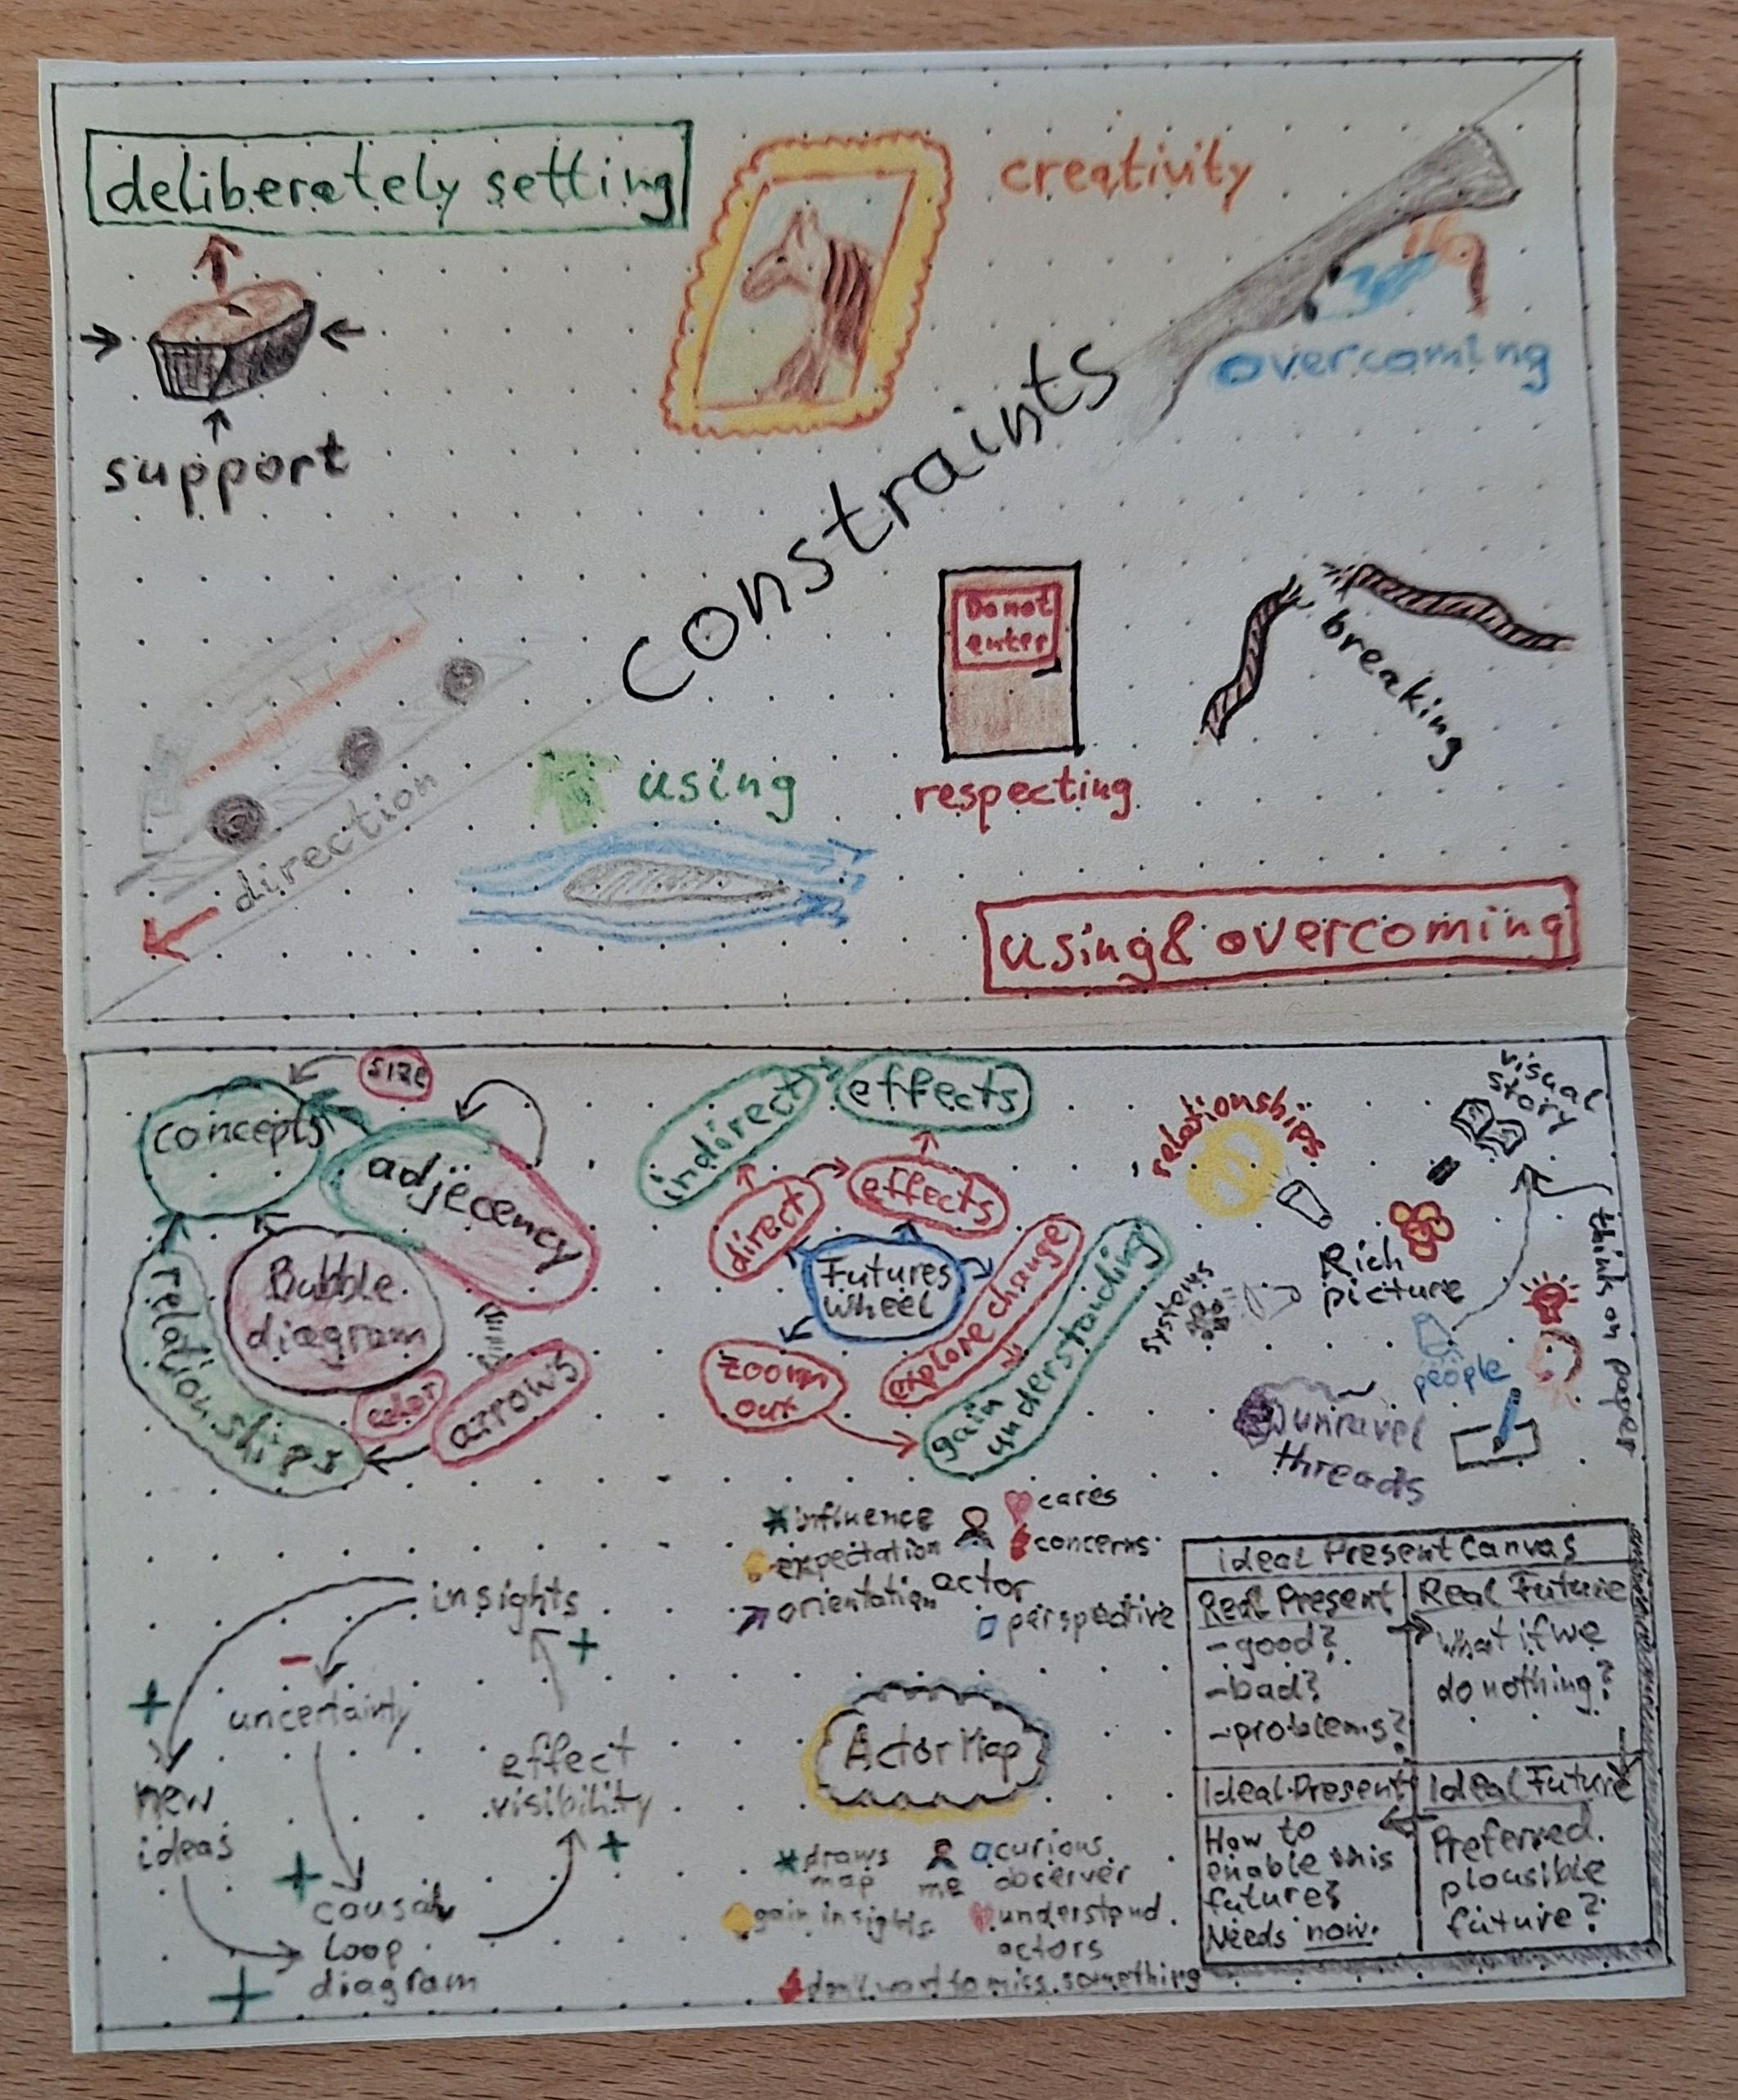 deliberately setting
creativity
overcoming
support
constraints
Do not
enter
breaking
using
respecting
direction
using & overcoming
size
concepts
adjecency
Bubble
diagram
relationships
color
arrows
indirect
effects
direct
effects
Futures
Wheel
explore change
zoom
out
gain
understanding
relationships
visual
story
Rich
picture
systems
people
think on paper
unravel
threads
influence
expectation
orientation
actor
cares
concerns
perspective
Actor Map
draws
map
me
a curious
observer
gain insights
understand
actors
don't want to miss something
insights
+
-
uncertainty
+
effect
visibility
new
ideas
+
+
causal
loop
diagram
+
Ideal Present Canvas
Real Present
- good?
- bad?
- problems?
Real Future
What if we
do nothing?
Ideal Present
How to
enable this
future?
Needs now.
Ideal Future
Preferred.
plausible
future?